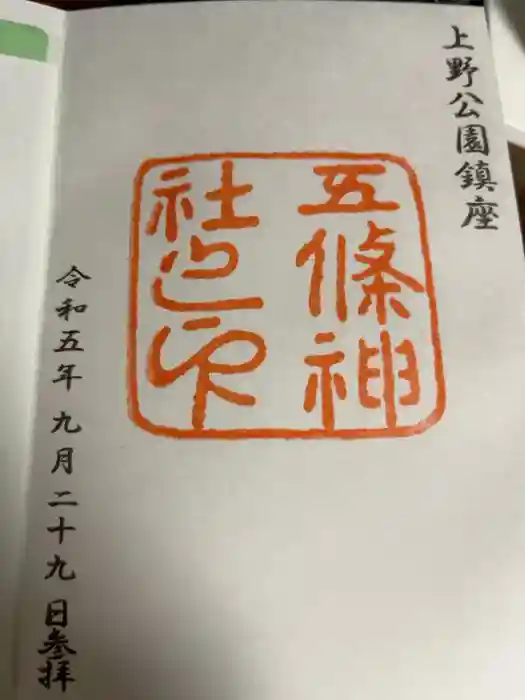 上野公園鎮座
五條神
社之印
令和五年九月二十九日参拝